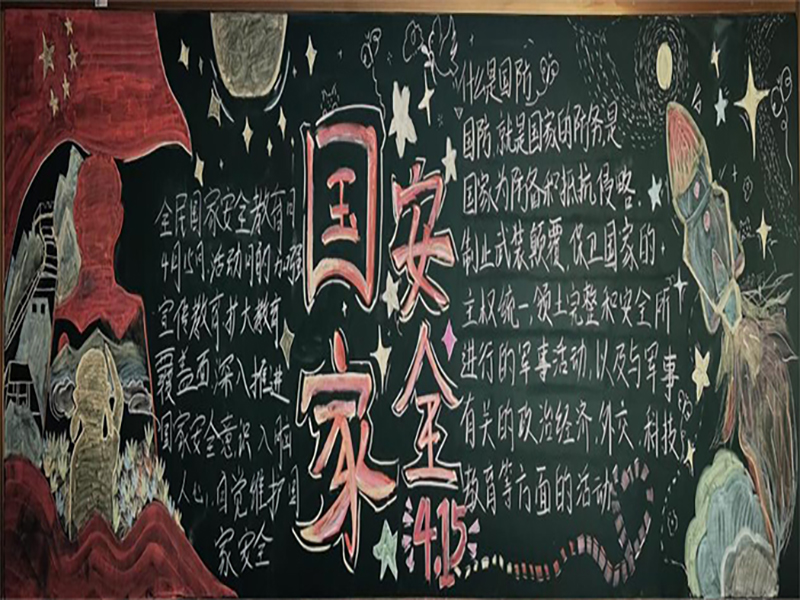 全民国家安全教育日
4月15日,活动目的为加强
宣传教育扩大教育
覆盖面,深入推进
国家安全意识入脑
入心,自觉维护国
家安全
国家
安全
4.15
什么是国防
国防,就是国家的防务是
国家为防备和抵抗侵略,
制止武装颠覆,保卫国家的
主权统一,领土完整和安全所
进行的军事活动,以及与军事
有关的政治经济,外交,科技
教育等方面的活动